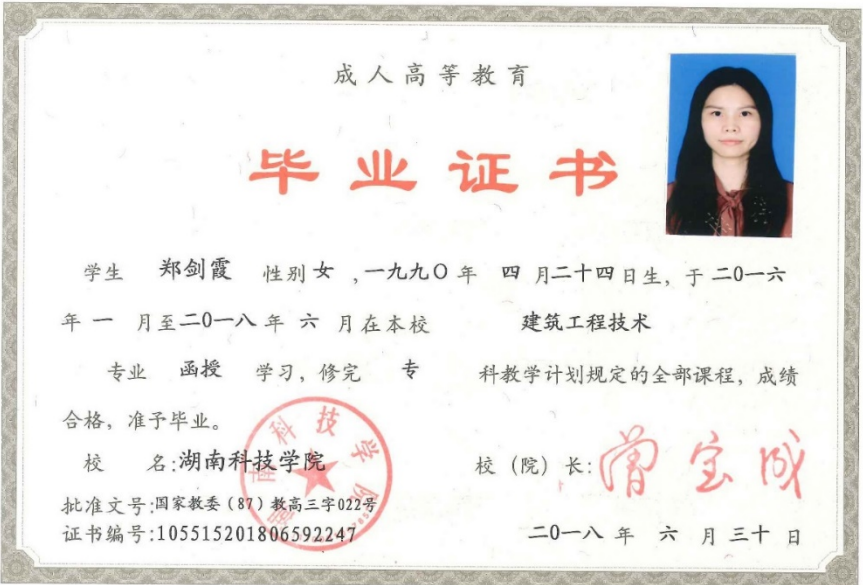 成人高等教育
毕业证书
学生 郑剑霞 性别 女 ,一九九〇 年 四 月二十四日生，于 二〇一六
年 一 月至二〇一八 年 六 月在本校 建筑工程技术
专业 函授 学习，修完 专 科教学计划规定的全部课程，成绩
合格，准予毕业。
校 名:湖南科技学院
校（院）长: 曾宝成
批准文号:国家教委（87）教高三字022号
证书编号:105515201806592247
二〇一八 年 六 月 三十 日